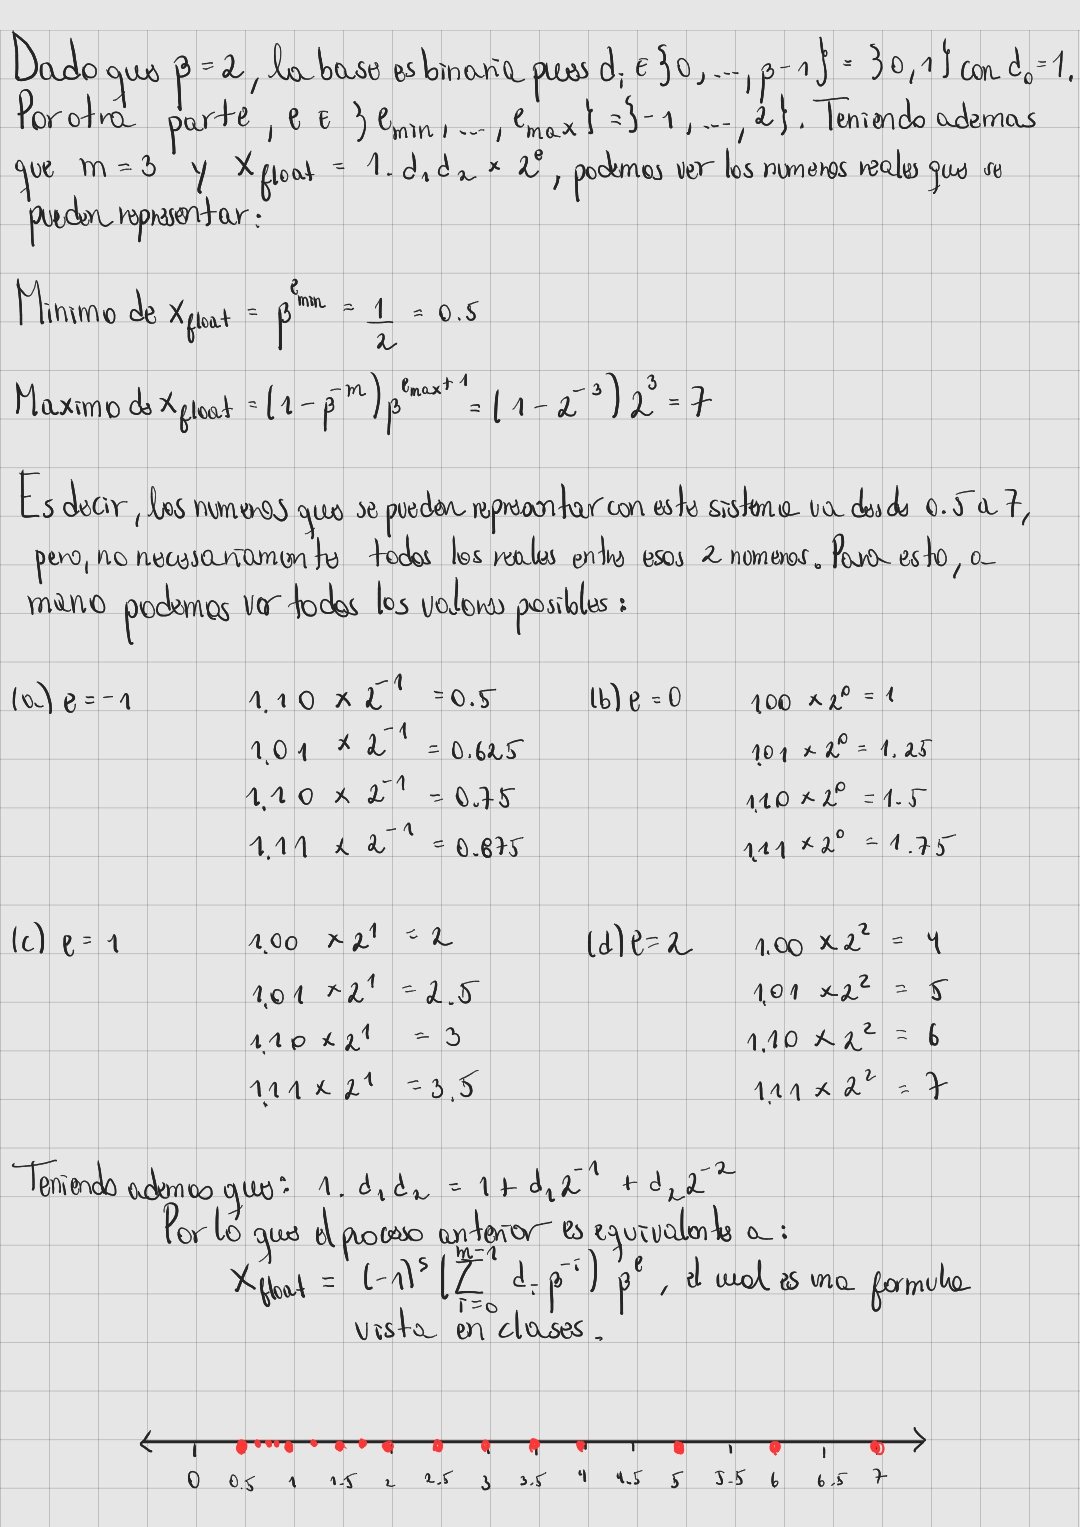 Dado que β = 2, la base es binaria pues dᵢ ∈ {0, ..., β-1} = {0, 1} con d₀ = 1.
Por otra parte, e ∈ {e_min, ..., e_max} = {-1, ..., 2}. Teniendo ademas
que m = 3 y x_float = 1.d₁d₂ × 2^e, podemos ver los numeros reales que se
pueden representar:
Minimo de x_float = β^(e_min) = 1/2 = 0.5
Maximo de x_float = (1 - β^(-m)) β^(e_max+1) = (1 - 2^(-3)) 2^3 = 7
Es decir, los numeros que se pueden representar con este sistema va desde 0.5 a 7,
pero, no necesariamente todos los reales entre esos 2 numeros. Para esto, a
mano podemos ver todos los valores posibles:
(a) e = -1 1.10 × 2^(-1) = 0.5 (b) e = 0 1.00 × 2^0 = 1
1.01 × 2^(-1) = 0.625 1.01 × 2^0 = 1.25
1.10 × 2^(-1) = 0.75 1.10 × 2^0 = 1.5
1.11 × 2^(-1) = 0.875 1.11 × 2^0 = 1.75
(c) e = 1 1.00 × 2^1 = 2 (d) e = 2 1.00 × 2^2 = 4
1.01 × 2^1 = 2.5 1.01 × 2^2 = 5
1.10 × 2^1 = 3 1.10 × 2^2 = 6
1.11 × 2^1 = 3.5 1.11 × 2^2 = 7
Teniendo ademas que: 1.d₁d₂ = 1 + d₁2^(-1) + d₂2^(-2)
Por lo que el proceso anterior es equivalente a:
x_float = (-1)^s (Σ_(i=0)^(m-1) dᵢ β^(-i)) β^e, el cual es una formula
vista en clases.
0 0.5 1 1.5 2 2.5 3 3.5 4 4.5 5 5.5 6 6.5 7